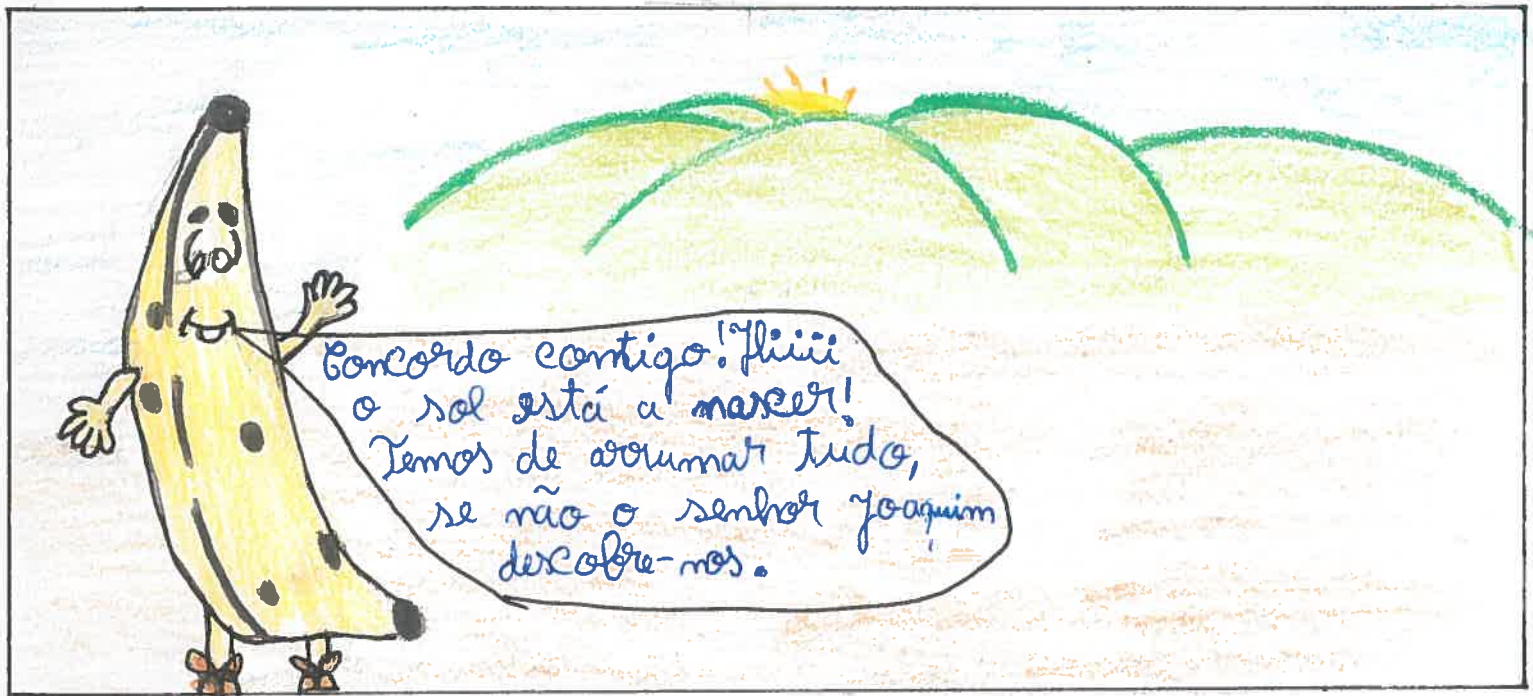 Concordo contigo! Hiiii
o sol está a nascer!
Temos de arrumar tudo,
se não o senhor Joaquim
descobre-nos.